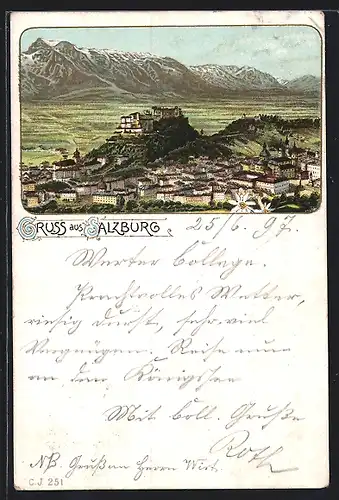 Gruss aus Salzburg
25/6. 97.
Werter Collega.
Prachtvolles Wetter,
riesig Durst, sehr viel
Vergnügen. Reise nun
an den Königssee
Mit coll. Gruße
Roth
NB. Gruß an Herrn Wirt.
C.J. 251